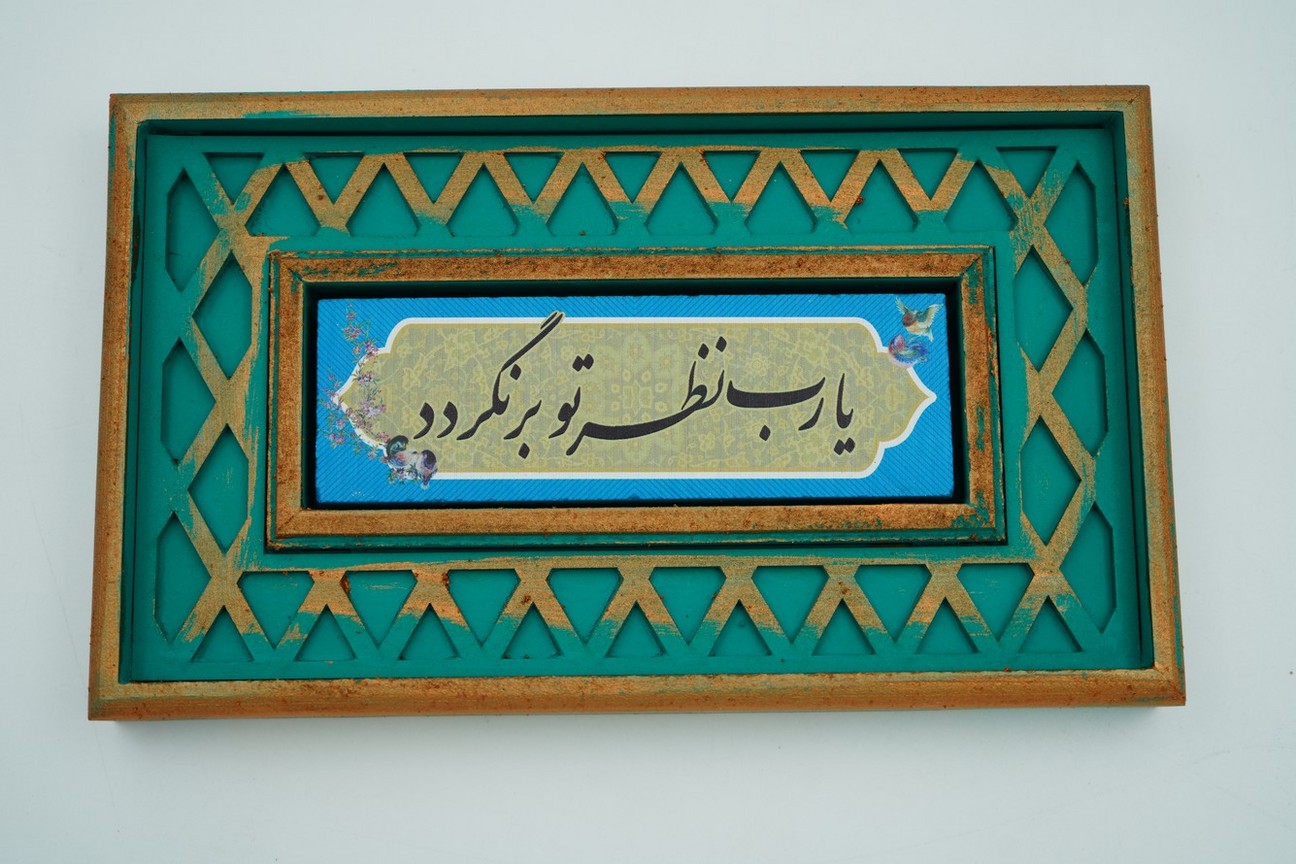 یا رب نظر تو برنگردد